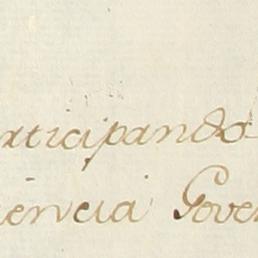 articipando
iencia Gover